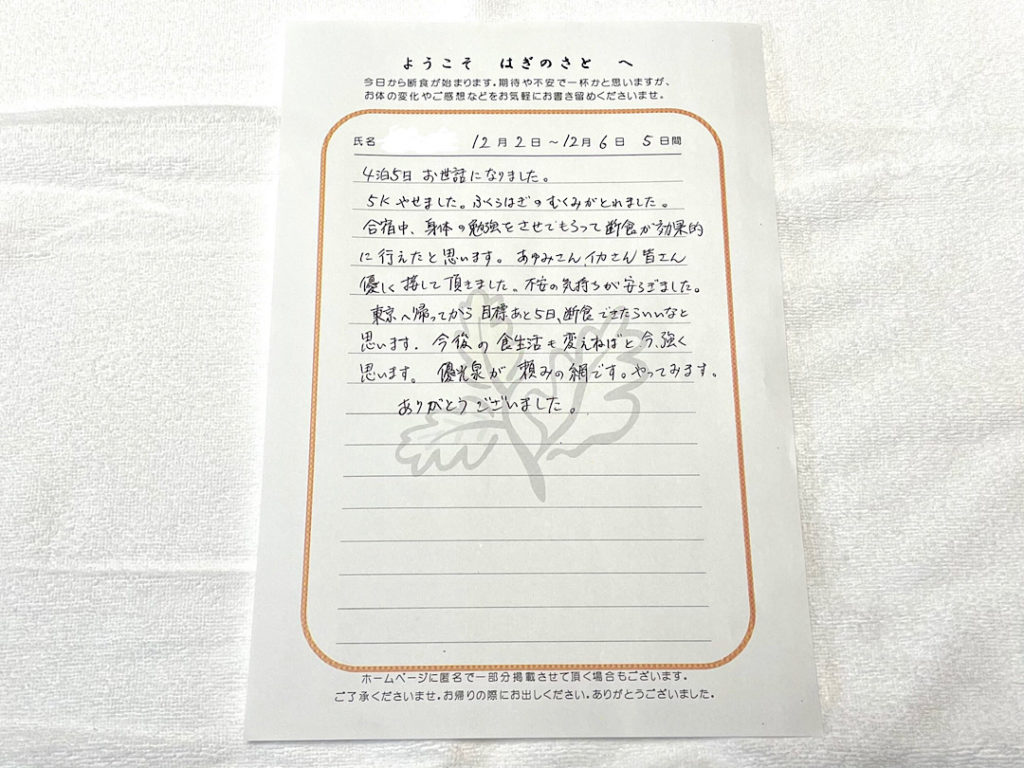 ようこそ はぎのさと へ
今日から断食が始まります。期待や不安で一杯かと思いますが、
お体の変化やご感想などをお気軽にお書き留めくださいませ。
氏名 12月2日～12月6日 5日間
4泊5日 お世話になりました。
5Kやせました。ふくらはぎのむくみがとれました。
合宿中、身体の勉強をさせてもらって断食が効果的
に行えたと思います。あゆみさん、イカさん 皆さん
優しく接して頂きました。不安の気持ちが安らぎました。
東京へ帰ってから目標あと5日、断食できたらいいなと
思います. 今後の食生活も変えねばと今、強く
思います。 優光泉が頼みの網です。やってみます。
ありがとうございました。
ホームページに匿名で一部分掲載させて頂く場合もございます。
ご了承くださいませ。お帰りの際にお出しください。ありがとうございました。